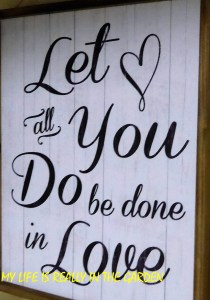 Let
all You
Do be done
in Love
MY LIFE IS REALLY IN THE GARDEN